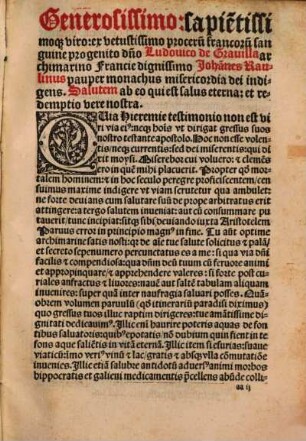 Generosissimo: sapiẽtissi
moq; viro: ex vetustissimo procerũ francorũ san
guine progenito dño Ludouico de Grauilla ar
chimarino Francie dignissimo Johãnes Rau
linus pauper monachus misericordia dei indi
gens. Salutem ab eo qui est salus eterna: et re
demptio vere nostra.
QUia Hieremie testimonio non est vi
ri via eiꝰ: neq; hoĩs vt dirigat gressus suos
nostro testante apostolo. Hoc non esse volen-
tis: neq; currentis: sed dei miserentis: qui di
xit moysi. Miserebor cui voluero: ⁊ clemẽs
ero in quẽ mihi placuerit. Propter qđ mor-
talem hominem: ⁊ in hoc seculo peregre proficiscentem/cen
suimus maxime indigere vt viam scrutetur qua ambulet: ne
ne forte deuians cum salutare suũ de prope arbitratus erit
attingere: a tergo salutem inueniat: aut cũ consummare pu
tauerit/tunc incipiat: sitq; sibi deuianti iuxta Aristotelem
Paruus error in principio magnꝰ in fine. Tu aũt optime
archimarine satis nosti: qr de aĩe tue salute solicitus ⁊ palã/
et secreto sepenumero percunctatus es a me: si qua via dari
facilis ⁊ compendiosa: qua dñm deũ tuum cũ feruore animi
et appropinquare/ ⁊ apprehendere valeres: si forte post cu
riales anfractus ⁊ linores: nauẽ aut saltẽ tabulam aliquam
inuenires: super quã inter naufragia saluari posses. Quã
obrem volumen paruulũ (qđ itinerariũ paradisi dixĩmus)
quo gressus tuos illuc raptim dirigeres: tue amãtissime di-
gnitati dedicauimꝰ. Illic enĩ haurire poteris aquas de fon
tibus saluatoris: quibꝰ epotatis/nõ dubium quin fient in te
fons aque saliẽtis in vitã eternã. Illic item si esurias: suaue
viaticũ: imo veriꝰ vinũ ⁊ lac/gratis ⁊ absq; vlla cõmutatiõe
inuenies. Illic etiã salubre antidotũ aduersꝰ animi morbos
hippocratis et galieni medicamentis p̃cellens abũde colli-
aa ij